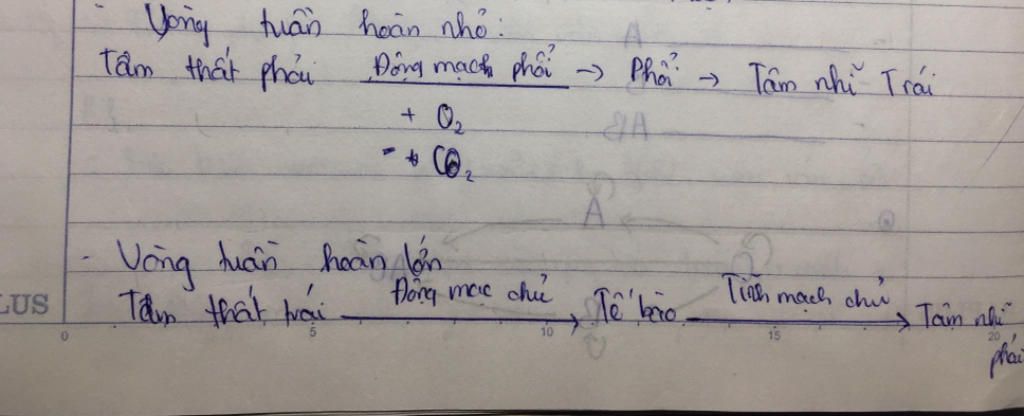 - Vòng tuần hoàn nhỏ:
Tâm thất phải Động mạch phổi → Phổi → Tâm nhĩ Trái
+ O₂
- CO₂
- Vòng tuần hoàn lớn
LUS Tâm thất trái Động mạc chủ → Tế bào Tĩnh mạch chủ → Tâm nhĩ
phải
0 5 10 15 20